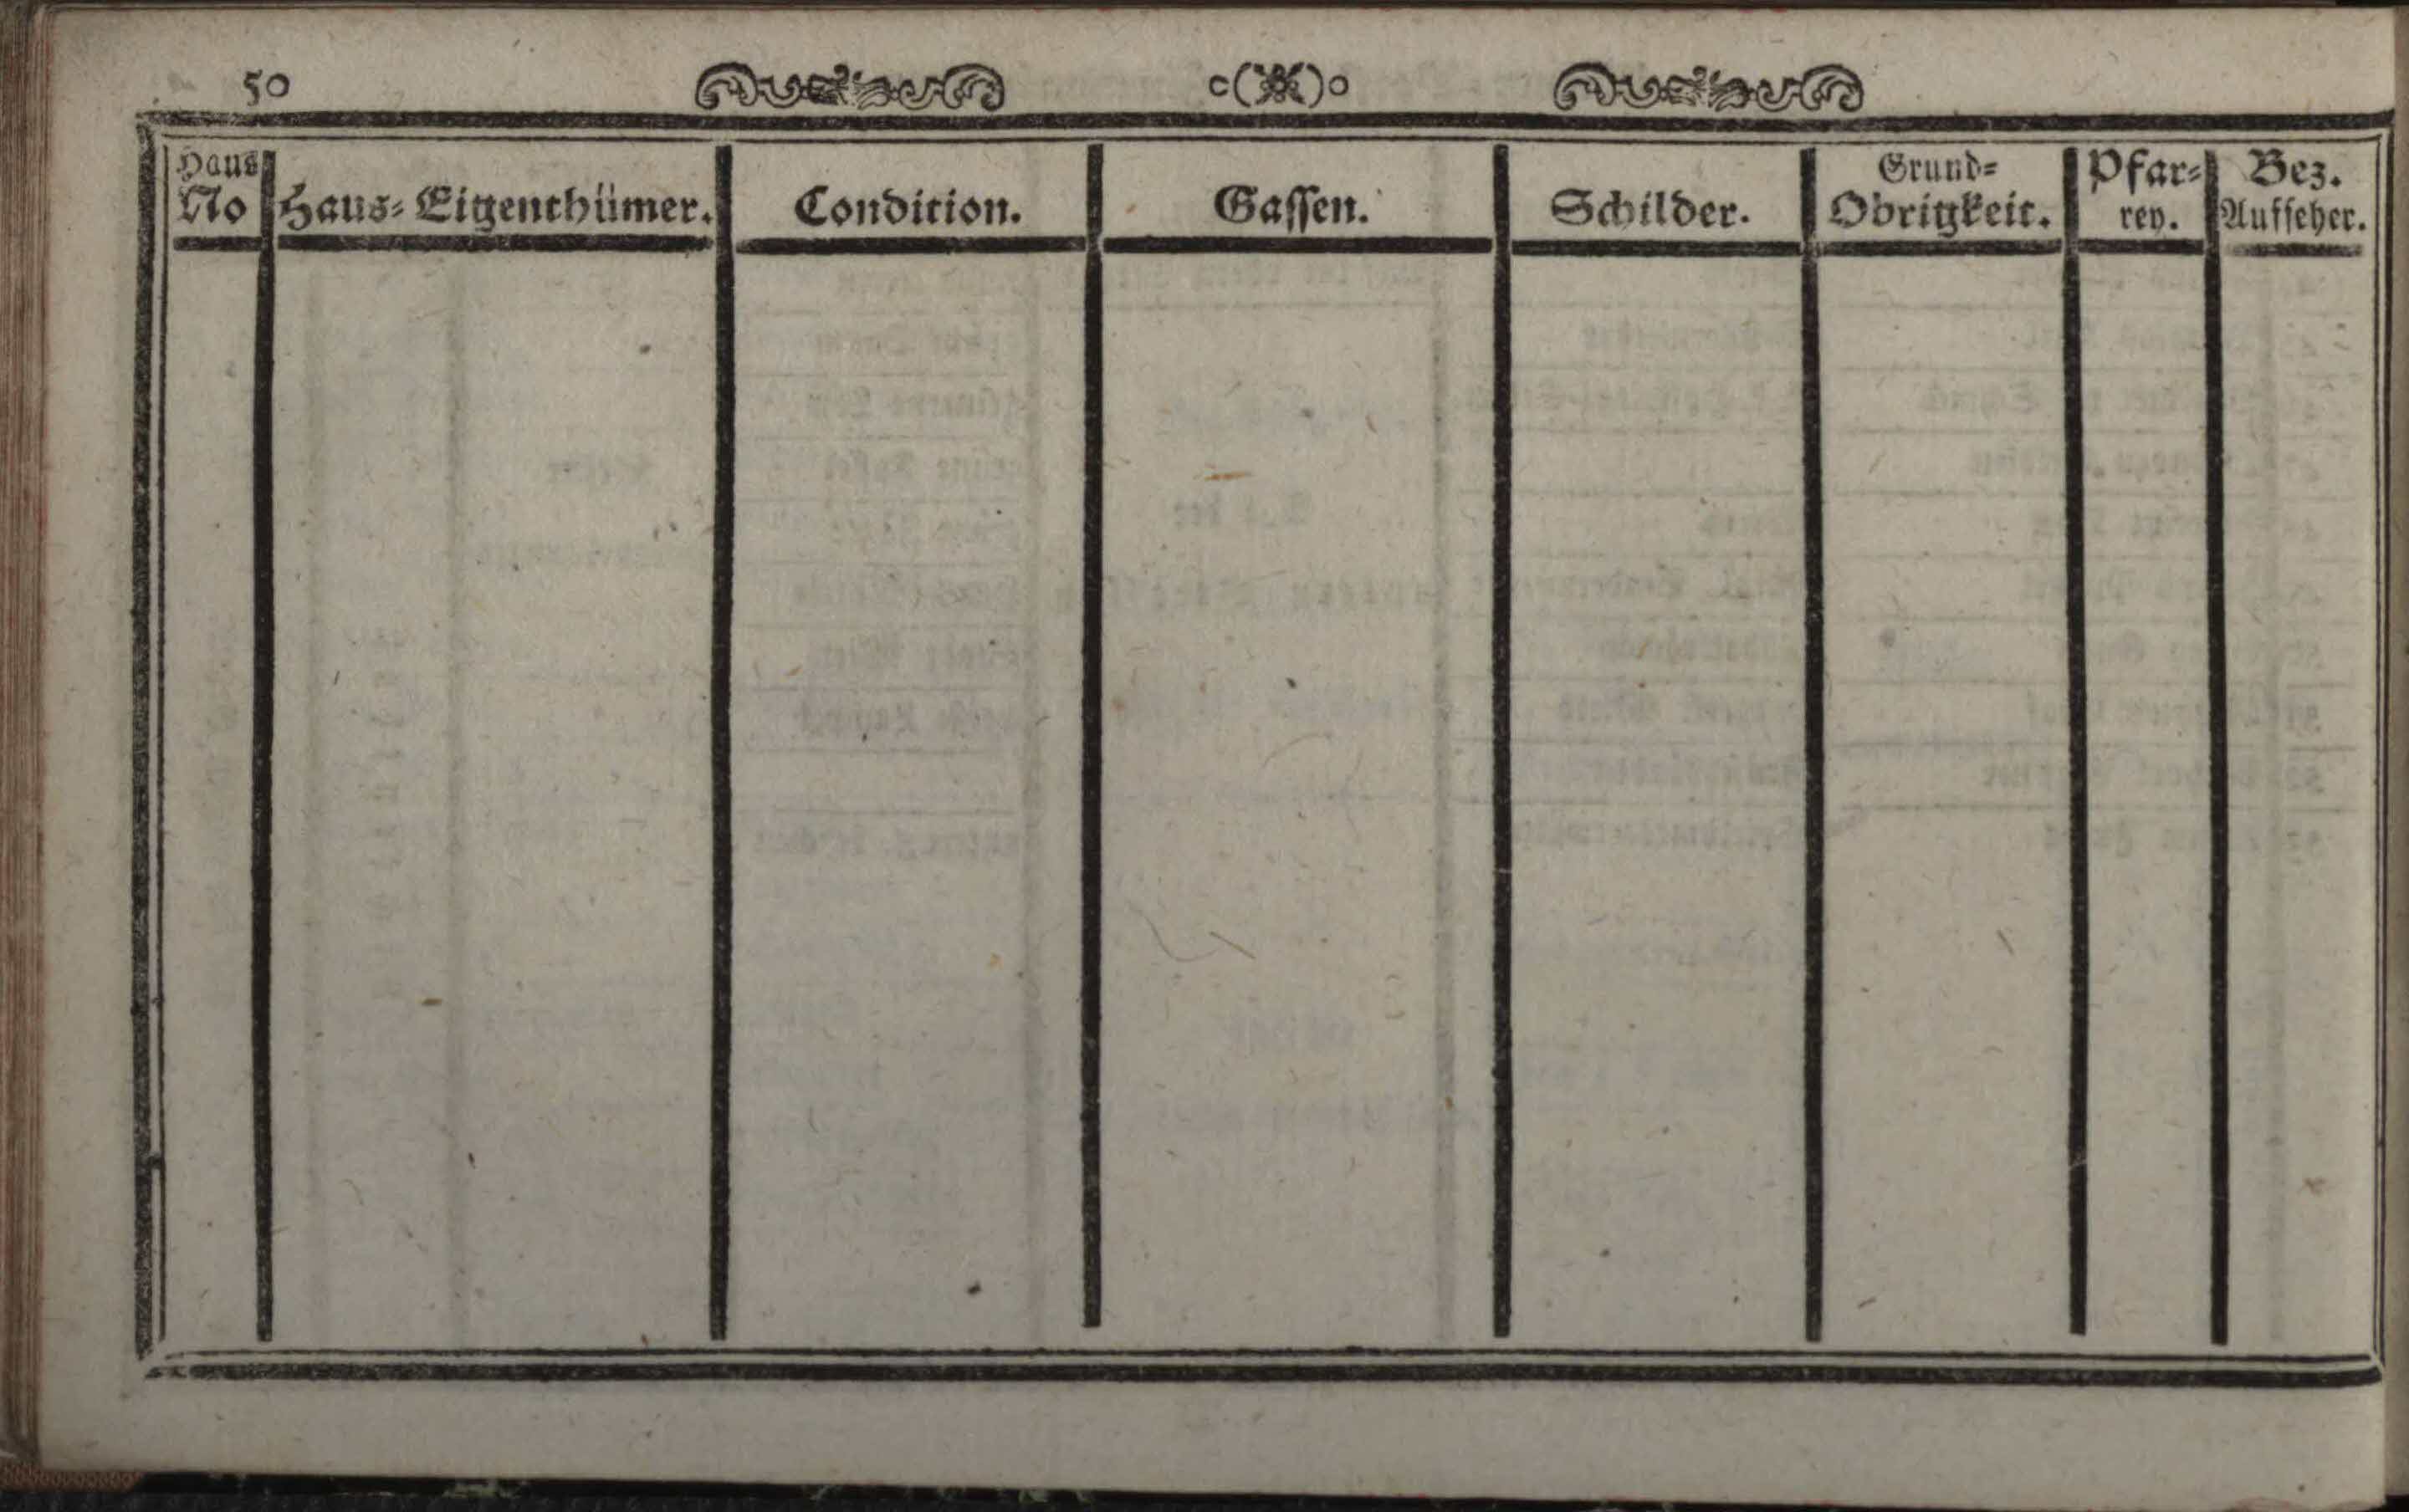 50
Haus No
Haus-Eigenthümer.
Condition.
Gassen.
Schilder.
Grund-
Obrigkeit.
Pfar-
rey.
Bez.
Aufseher.